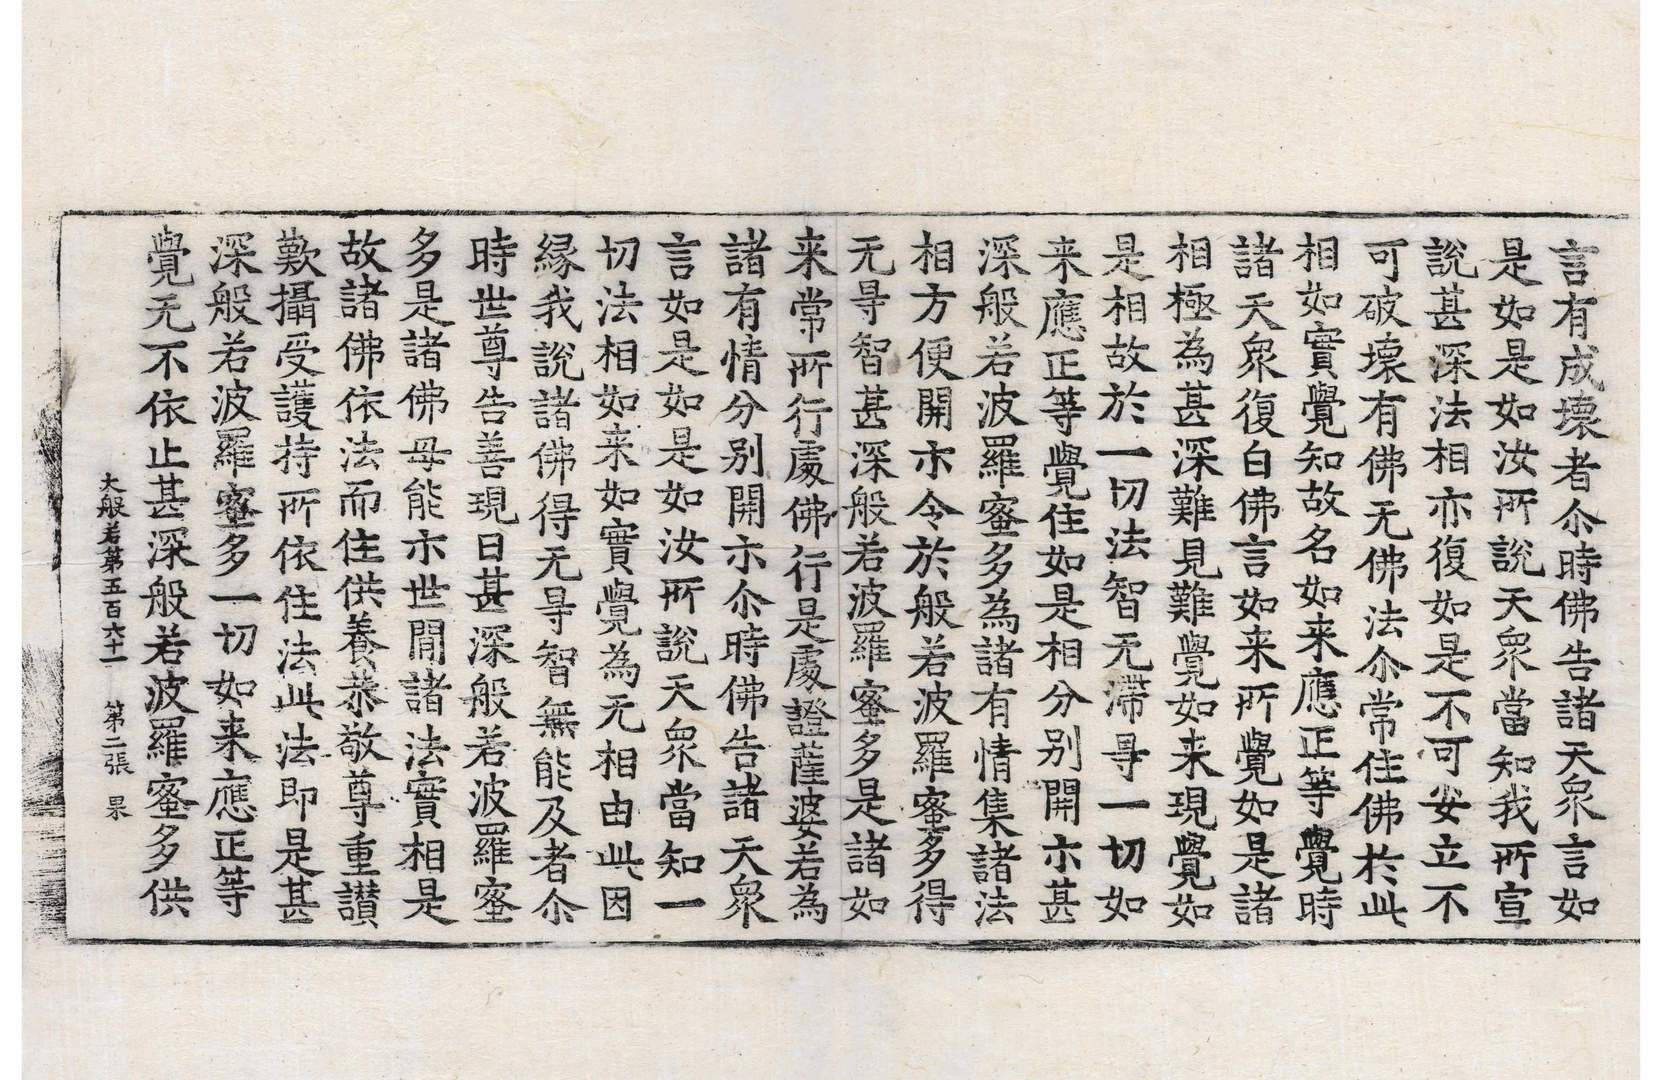 言有成壞者尒時佛告諸天衆言如
是如是如汝所說天衆當知我所宣
說甚深法相亦復如是不可安立不
可破壞有佛无佛法尒常住佛於此
相如實覺知故名如来應正等覺時
諸天衆復白佛言如来所覺如是諸
相極為甚深難見難覺如来現覺如
是相故於一切法智无滯㝵一切如
来應正等覺住如是相分别開示甚
深般若波羅蜜多為諸有情集諸法
相方便開示令於般若波羅蜜多得
无㝵智甚深般若波羅蜜多是諸如
来常所行處佛行是處證薩婆若為
諸有情分别開示尒時佛告諸天衆
言如是如是如汝所說天衆當知一
切法相如来如實覺為无相由此因
緣我說諸佛得无㝵智無能及者尒
時世尊告善現曰甚深般若波羅蜜
多是諸佛母能示世閒諸法實相是
故諸佛依法而住供養恭敬尊重讃
歎攝受護持所依住法此法即是甚
深般若波羅蜜多一切如来應正等
覺无不依止甚深般若波羅蜜多供
大般若第五百六十一 第二張 杲